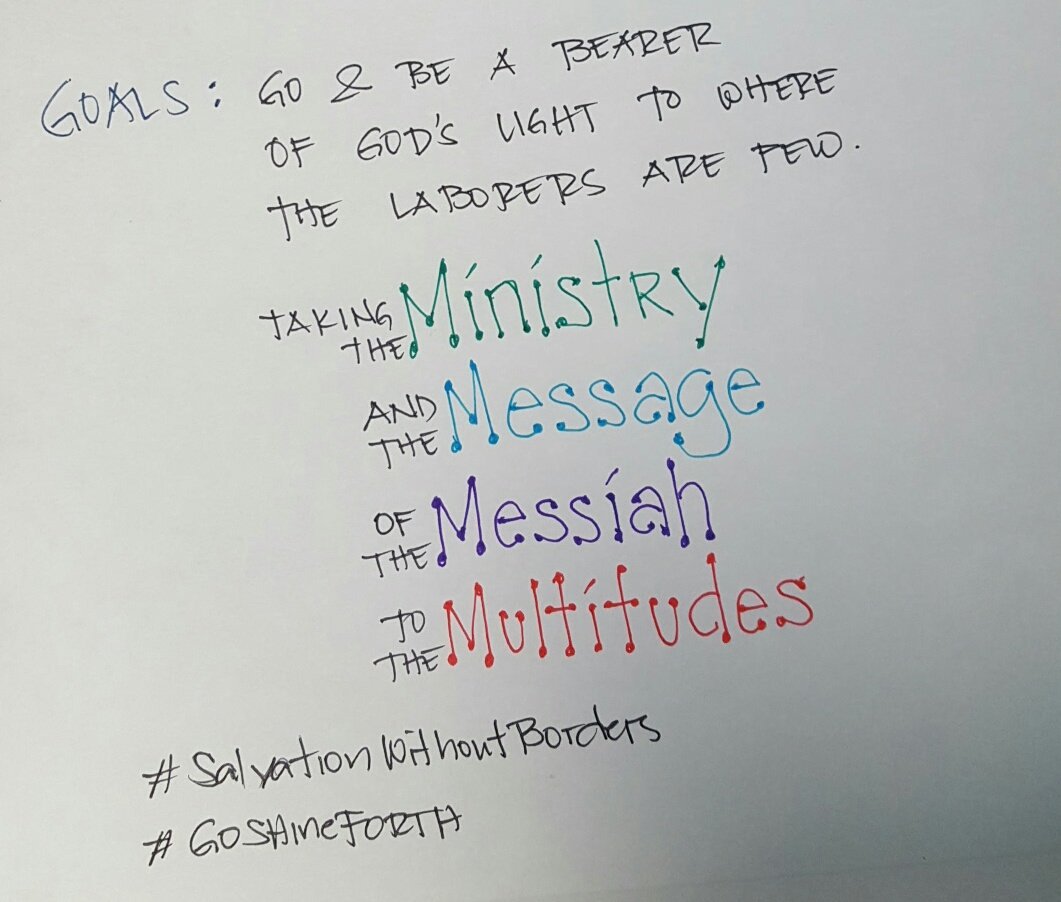 GOALS: GO & BE A BEARER
OF GOD'S LIGHT TO WHERE
THE LABORERS ARE FEW.
TAKING THE Ministry
AND THE Message
OF THE Messiah
TO THE Multitudes
#SalvationWithoutBorders
#GOSHineFORTH